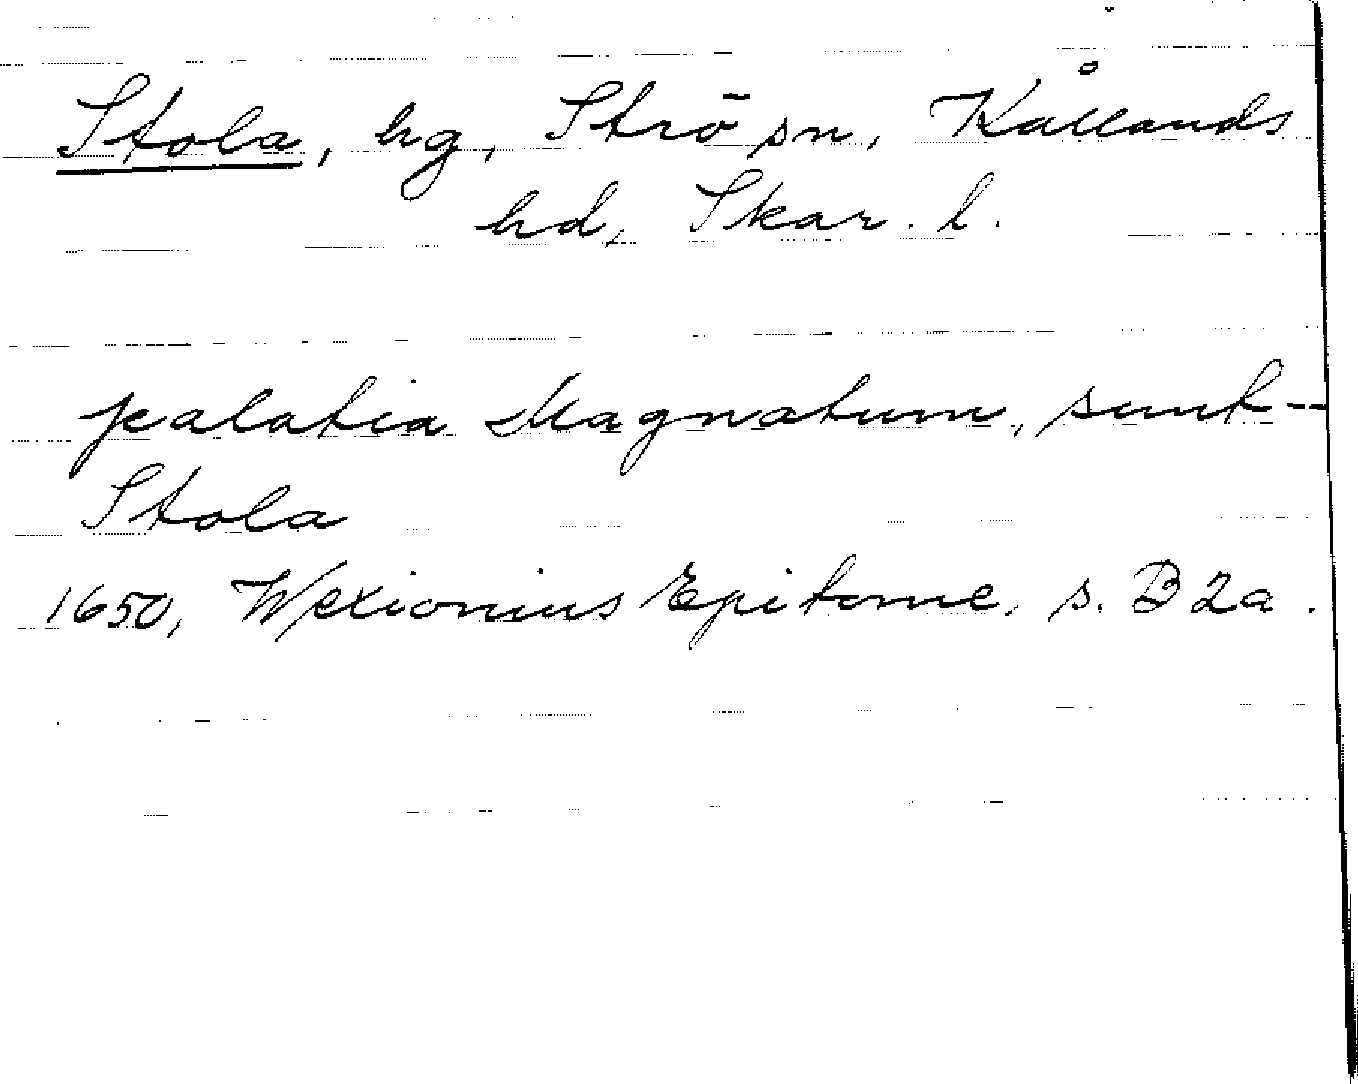 Stola, hg, Strö sn, Kållands
hd, Skar. l.
palatia Magnatum, sunt -
Stola
1650, Wexionius Epitome, s. B 2a.